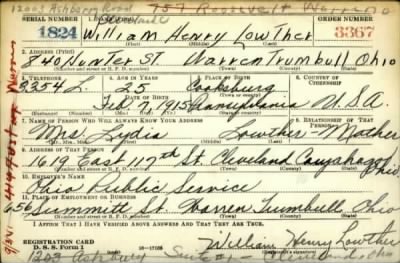 12003 Ashbury Road 757 Roosevelt Warren O
Cleveland
SERIAL NUMBER
1. NAME
ORDER NUMBER
1824
William Henry Lowther
3367
(First) (Middle) (Last)
2. ADDRESS (Print)
840 Hunter St. Warren Trumbull Ohio
(Number and street or R. F. D. number) (Town) (County) (State)
3. TELEPHONE
4. AGE IN YEARS
5. PLACE OF BIRTH
6. COUNTRY OF CITIZENSHIP
3354 L.
25
Cooksburg
DATE OF BIRTH
Feb. 7, 1915
Pennsylvania
U.S.A.
7. NAME OF PERSON WHO WILL ALWAYS KNOW YOUR ADDRESS
8. RELATIONSHIP OF THAT PERSON
Mrs. Lydia Lowther - Mother
9. ADDRESS OF THAT PERSON
1619 East 117th St. Cleveland Cuyahoga Ohio
(Number and street or R. F. D. number) (Town) (County) (State)
10. EMPLOYER'S NAME
Ohio Public Service
11. PLACE OF EMPLOYMENT OR BUSINESS
656 Summitt St. Warren Trumbull Ohio
(Number and street or R. F. D. number) (Town) (County) (State)
I AFFIRM THAT I HAVE VERIFIED ABOVE ANSWERS AND THAT THEY ARE TRUE.
REGISTRATION CARD
D. S. S. Form 1
16—17105
William Henry Lowther
(Registrant's signature)
1203 Ashbury Suite